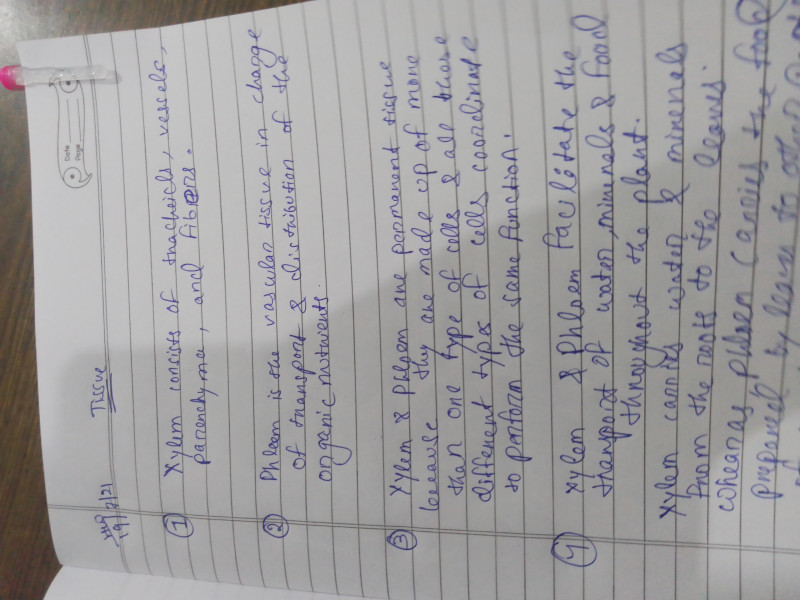 Date
Page
Tissue
19/7/21
① Xylem concists of tracheids, vessels,
parenchyma, and fibers.
② Phloem is the vascular tissue in change
of transport & distribution of the
organic nutrients.
③ Xylem & Phloem are permanent tissue
because they are made up of more
than one type of cells & all these
different types of cells coordinate
to perform the same function.
④ Xylem & Phloem facilitate the
transport of water, minerals & food
throughout the plant.
Xylem carries water & minerals
from the roots to the leaves.
Whearas Phloem carries the food
prepared by leaves to other